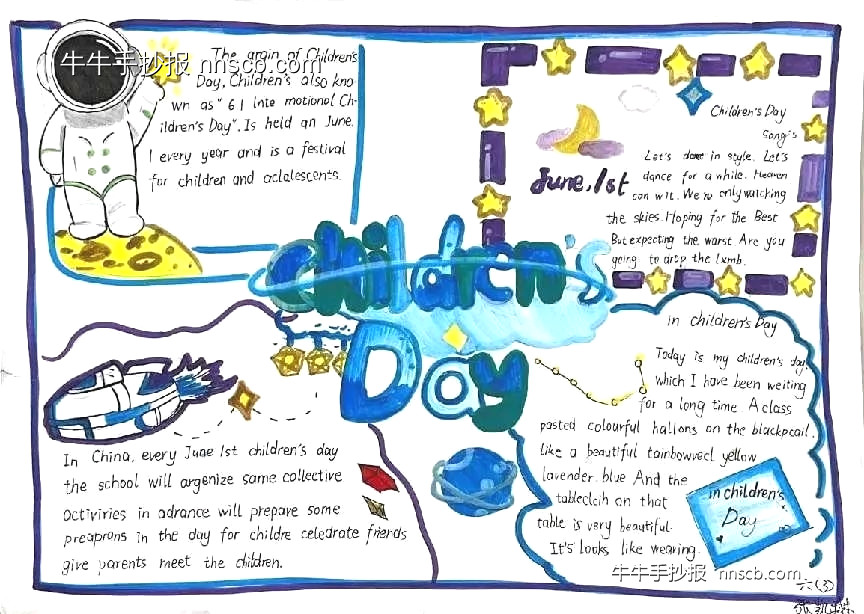 牛牛手抄报 nnscb.com
The orgin of Children's
Day, Children's also kno
wn as "61 Inte mational Ch-
ildren's Day". Is held on June.
1 every year and is a festival
for children and adolescents.
Children's Day
Song's
June, 1st
Let's dance in style, Let's
dance for a while. Heaven
can wit. We're only watching
the skies. Hoping for the Best
But expecting the warst Are you
going to drop the bmb.
Children's
Day
In China, every June 1st children's day
the school will argenize same collective
activiries in adrance will prepare some
preaprons in the day for childre celedrate friends
give parents meet the children.
in children's Day
Today is my children's day,
which I have been weiting
for a long time. A class
pasted colourful hallons on the blackpcail.
like a beautiful tainbowvecl yellow
lavender. blue And the
tablecloih on that
table is very beautiful.
It's looks like wearing.
in children's
Day
牛牛手抄报 nnscb.com
六(3)